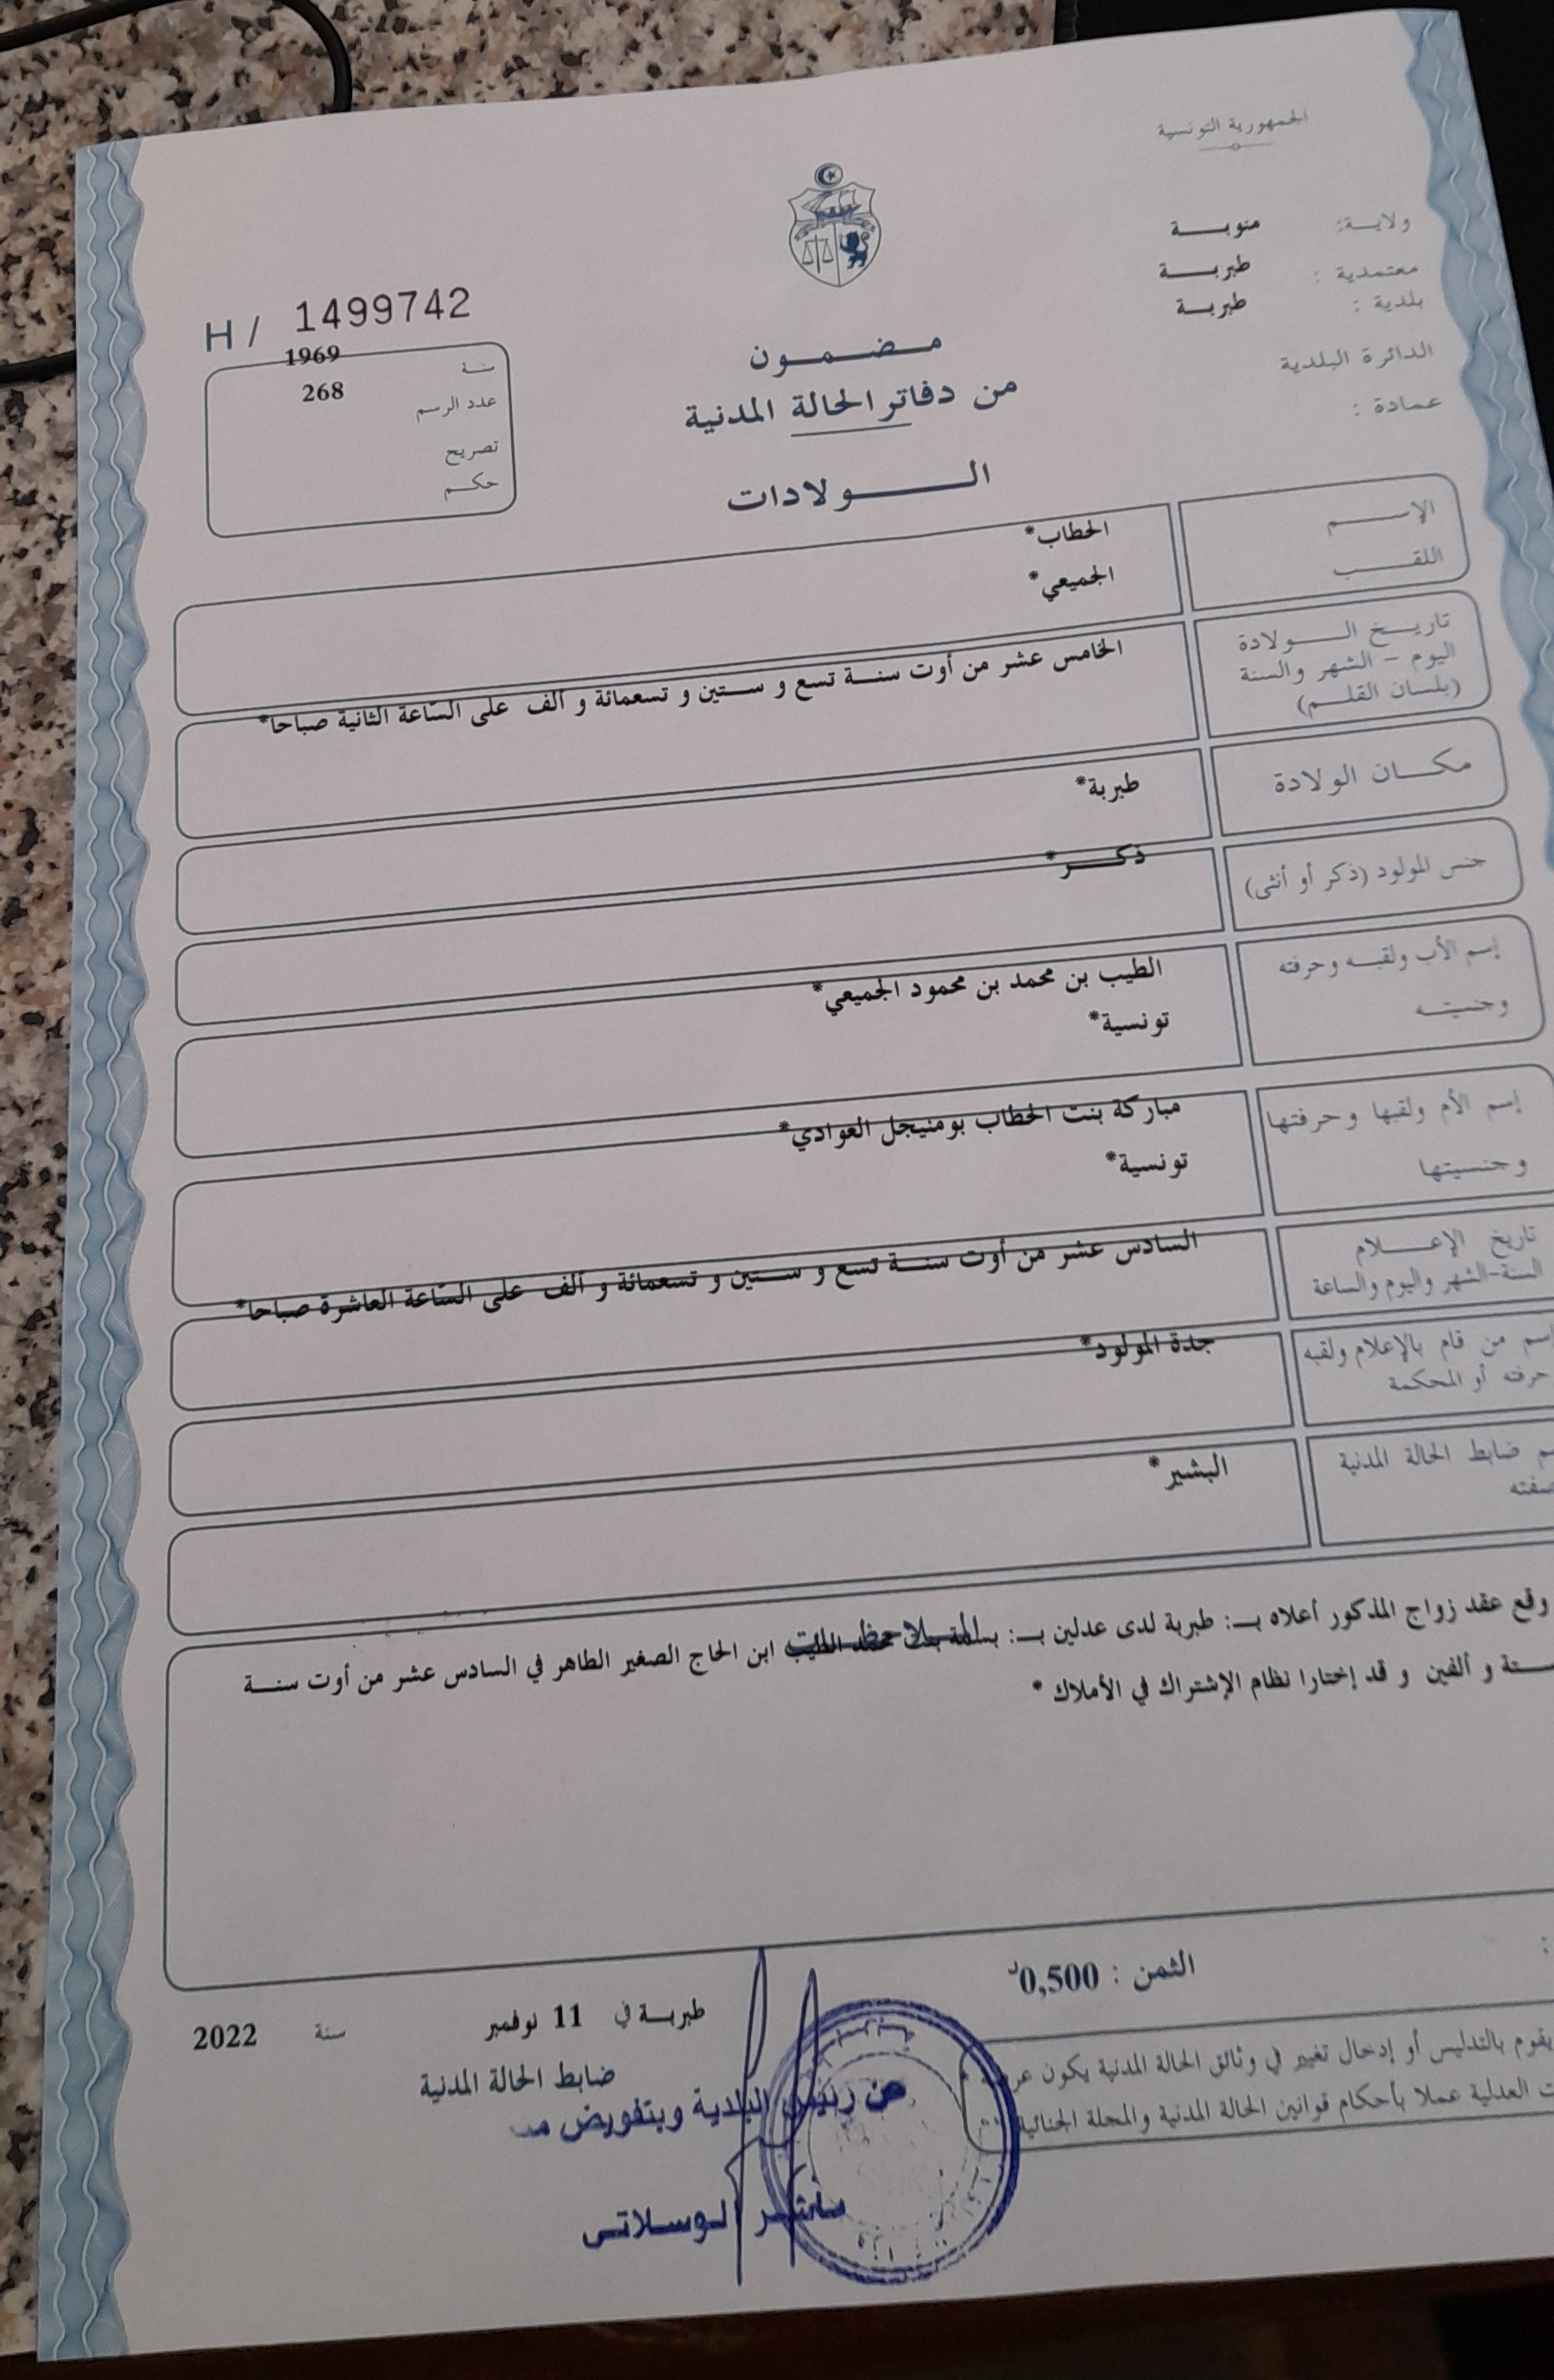 الجمهورية التونسية
ولايـة: منوبـــة
معتمدية : طبربـــة
بلدية : طبربـــة
الدائرة البلدية
عمادة :
H / 1499742
سنة 1969
عدد الرسم 268
تصريح
حكـم
مـضـمـون
من دفاتر الحالة المدنية
الـــولادات
الإســـم الخطاب*
اللقـــب الجميعي*
تاريـخ الـــولادة
اليوم - الشهر والسنة
(بلسان القلـم)
الخامس عشر من أوت سنـة تسع و ستين و تسعمائة و ألف على السّاعة الثانية صباحا*
مكـــان الولادة طبربة*
جنس المولود (ذكر أو أنثى) ذكـــر*
إسم الأب ولقبـه وحرفته الطيب بن محمد بن محمود الجميعي*
وجنسيتـه تونسية*
إسم الأم ولقبها وحرفتها مباركة بنت الخطاب بومنيجل العوادي*
وجنسيتها تونسية*
تاريخ الإعـــلام
السنة-الشهر واليوم والساعة
السادس عشر من أوت سنـة تسع و ستين و تسعمائة و ألف على السّاعة العاشرة صباحا*
إسم من قام بالإعلام ولقبه جدة المولود*
حرفته أو المحكمة
ضابط الحالة المدنية البشير*
الملاحظـــات
وقع عقد زواج المذكور أعلاه بـ: طبربة لدى عدلين بـ: ابن الحاج الصغير الطاهر في السادس عشر من أوت سنـــة
ستة و ألفين و قد إختارا نظام الإشتراك في الأملاك *
الثمن : 0,500د
طبربـة في 11 نوفمبر سنة 2022
ضابط الحالة المدنية
عن رئيس البلدية وبتفويض منه
الوسلاتي
يقوم بالتدليس أو إدخال تغيير في وثائق الحالة المدنية يكون
العدلية عملا بأحكام قوانين الحالة المدنية والمجلة الجنائية